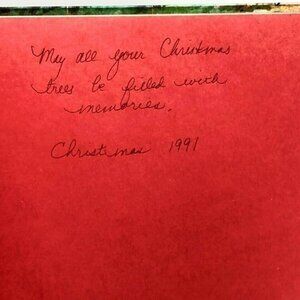 May all your Christmas
trees be filled with
memories.
Christmas 1991